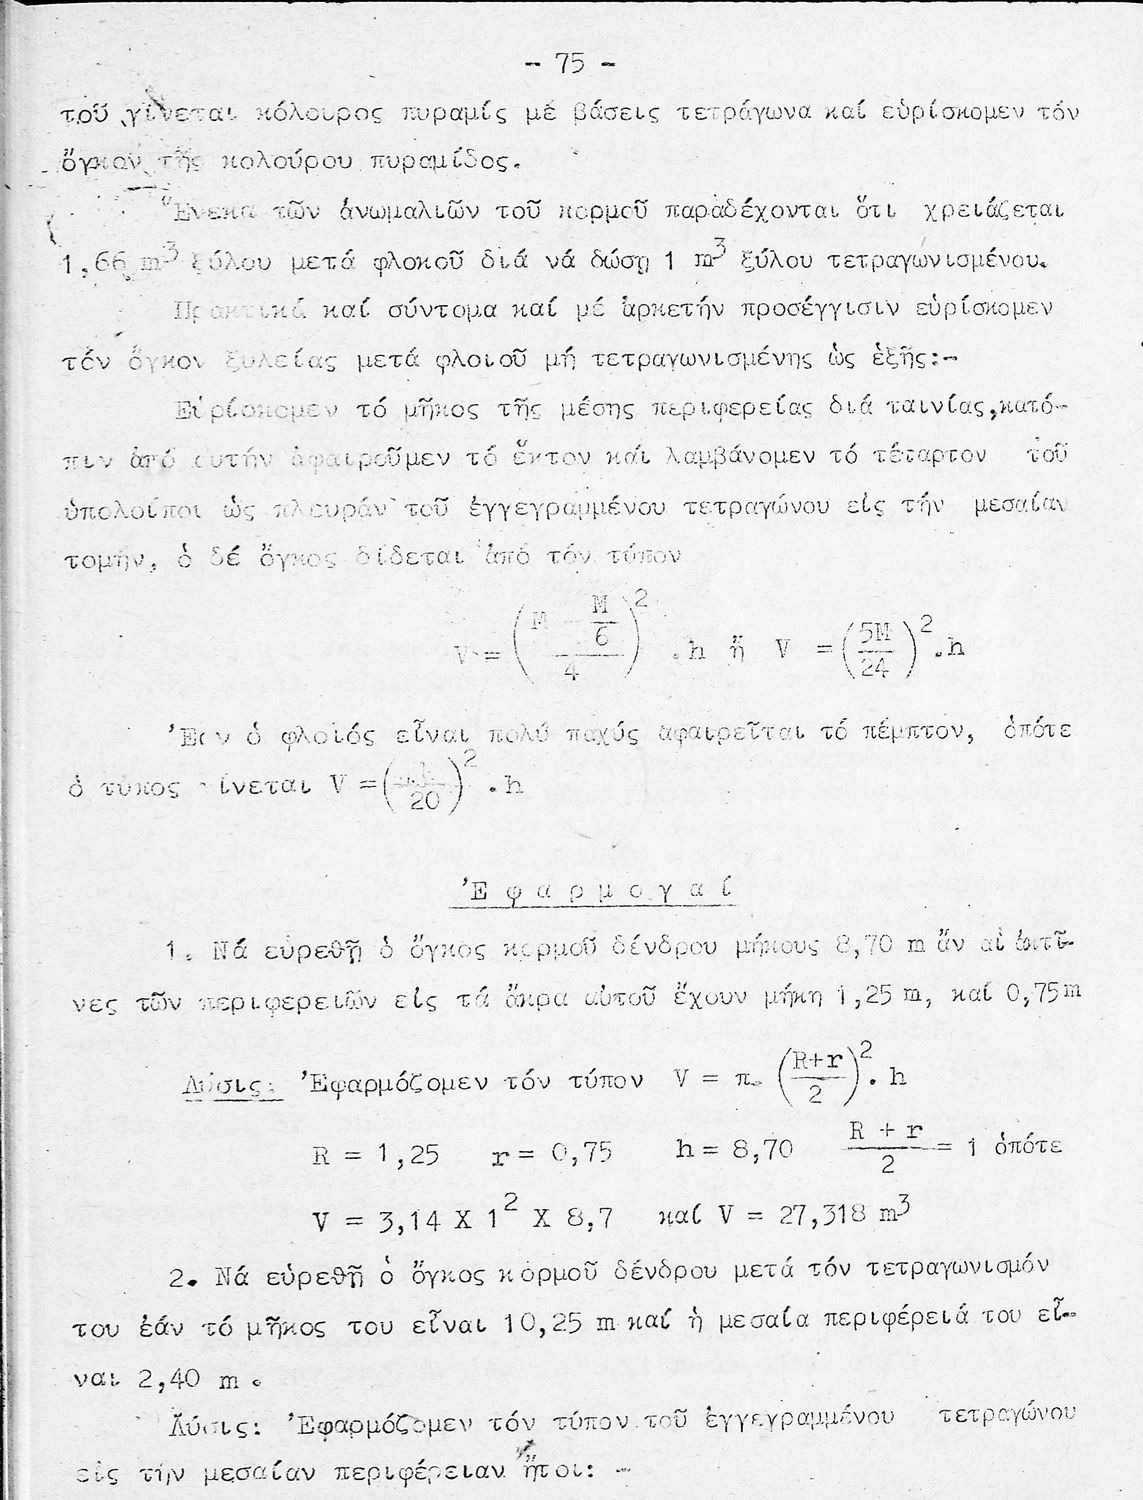 - 75 -
τοῦ γίνεται κόλουρος πυραμίς μέ βάσεις τετράγωνα καί εὑρίσκομεν τόν
ὄγκον τῆς κολούρου πυραμίδος.
Ἕνεκα τῶν ἀνωμαλιῶν τοῦ κορμοῦ παραδέχονται ὅτι χρειάζεται
1,66 m³ ξύλου μετά φλοκοῦ διά νά δώση 1 m³ ξύλου τετραγωνισμένου.
Πρακτικά καί σύντομα καί μέ ἀρκετήν προσέγγισιν εὑρίσκομεν
τόν ὄγκον ξυλείας μετά φλοιοῦ μή τετραγωνισμένης ὡς ἑξῆς:-
Εὑρίσκομεν τό μῆκος τῆς μέσης περιφερείας διά ταινίας, κατό-
πιν ἀπό αυτήν ἀφαιροῦμεν τό ἕκτον καί λαμβάνομεν τό τέταρτον τοῦ
ὑπολοίποι ὡς πλευράν τοῦ ἐγγεγραμμένου τετραγώνου εἰς τήν μεσαίαν
τομήν, ὁ δέ ὄγκος δίδεται ἀπό τόν τύπον
V = ((M - M/6)/4)² .h ἤ V = (5M/24)² .h
Ἐάν ὁ φλοιός εἶναι πολύ παχύς ἀφαιρεῖται τό πέμπτον, ὁπότε
ὁ τύπος γίνεται V = ( /20)² .h
Ἐφαρμογαί
1. Νά εὑρεθῇ ὁ ὄγκος κορμοῦ δένδρου μήκους 8,70 m ἄν αἱ ἀκτῖ-
νες τῶν περιφερειῶν εἰς τά ἄκρα αὐτοῦ ἔχουν μήκη 1,25 m, καί 0,75 m
Λύσις: Ἐφαρμόζομεν τόν τύπον V = π. ((R+r)/2)² . h
R = 1,25 r = 0,75 h = 8,70 (R + r)/2 = 1 ὁπότε
V = 3,14 X 1² X 8,7 καί V = 27,318 m³
2. Νά εὑρεθῇ ὁ ὄγκος κορμοῦ δένδρου μετά τόν τετραγωνισμόν
του ἐάν τό μῆκος του εἶναι 10,25 m καί ἡ μεσαία περιφέρειά του εἶ-
ναι 2,40 m.
Λύσις: Ἐφαρμόζομεν τόν τύπον τοῦ ἐγγεγραμμένου τετραγώνου
εἰς τήν μεσαίαν περιφέρειαν ἤτοι: -